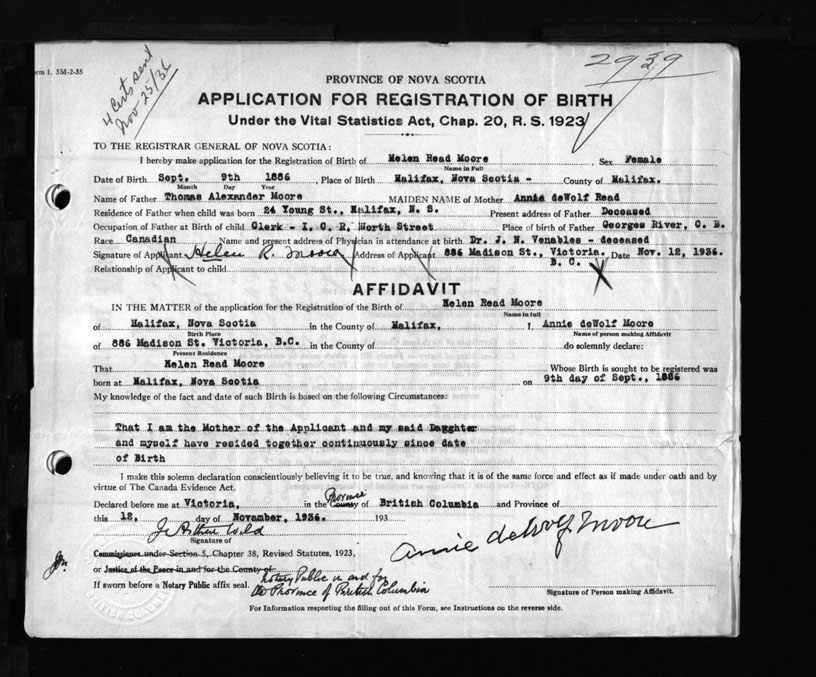 4 Certs sent
Nov 25/36
2939
Form 1. 5M-2-35
PROVINCE OF NOVA SCOTIA
APPLICATION FOR REGISTRATION OF BIRTH
Under the Vital Statistics Act, Chap. 20, R. S. 1923
TO THE REGISTRAR GENERAL OF NOVA SCOTIA:
I hereby make application for the Registration of Birth of Helen Read Moore Sex Female
Name in Full
Date of Birth Sept. 9th 1886, Place of Birth Halifax, Nova Scotia - County of Halifax.
Month Day Year
Name of Father Thomas Alexander Moore MAIDEN NAME of Mother Annie deWolf Read
Residence of Father when child was born 24 Young St., Halifax, N. S. Present address of Father Deceased
Occupation of Father at Birth of child Clerk - I. C. R. North Street Place of birth of Father Georges River, C. B.
Race Canadian Name and present address of Physician in attendance at birth Dr. J. N. Venables - deceased
Signature of Applicant Helen R. Moore Address of Applicant 886 Madison St., Victoria. Date Nov. 12, 1936.
B. C.
Relationship of Applicant to child
AFFIDAVIT
IN THE MATTER of the application for the Registration of the Birth of Helen Read Moore
Name in full
of Halifax, Nova Scotia in the County of Halifax, I Annie deWolf Moore
Birth Place Name of person making Affidavit
of 886 Madison St. Victoria, B.C. in the County of do solemnly declare:
Present Residence
That Helen Read Moore Whose Birth is sought to be registered was
born at Halifax, Nova Scotia on 9th day of Sept., 1886
My knowledge of the fact and date of such Birth is based on the following Circumstances:
That I am the Mother of the Applicant and my said Daughter
and myself have resided together continuously since date
of Birth
I make this solemn declaration conscientiously believing it to be true, and knowing that it is of the same force and effect as if made under oath and by
virtue of The Canada Evidence Act.
Province
Declared before me at Victoria, in the County of British Columbia and Province of
this 12, day of November, 1936. 193
Annie deWolf Moore
Signature of
Commissioner under Section 5, Chapter 38, Revised Statutes, 1923,
or Justice of the Peace in and for the County of
Notary Public in and for
If sworn before a Notary Public affix seal. the Province of British Columbia
Signature of Person making Affidavit.
For Information respecting the filling out of this Form, see Instructions on the reverse side.